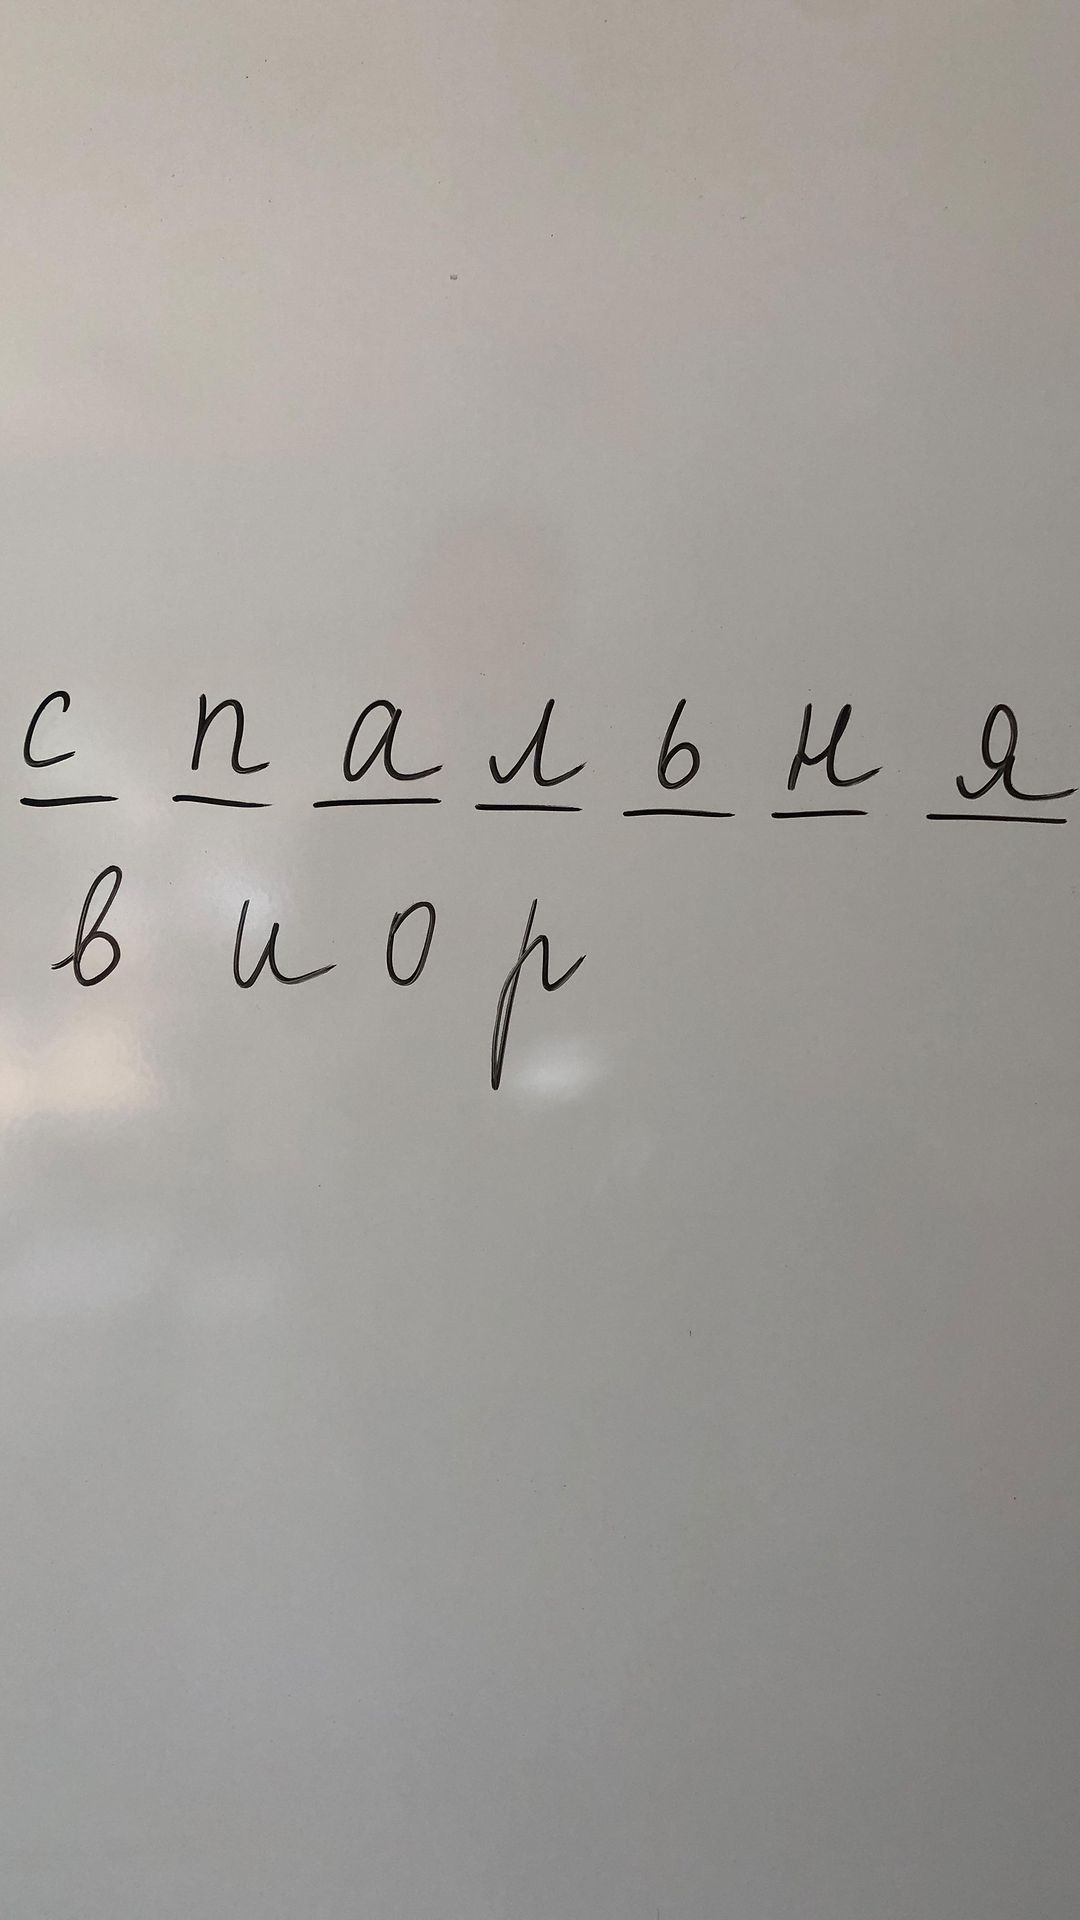 с п а л ь н я
в и о р